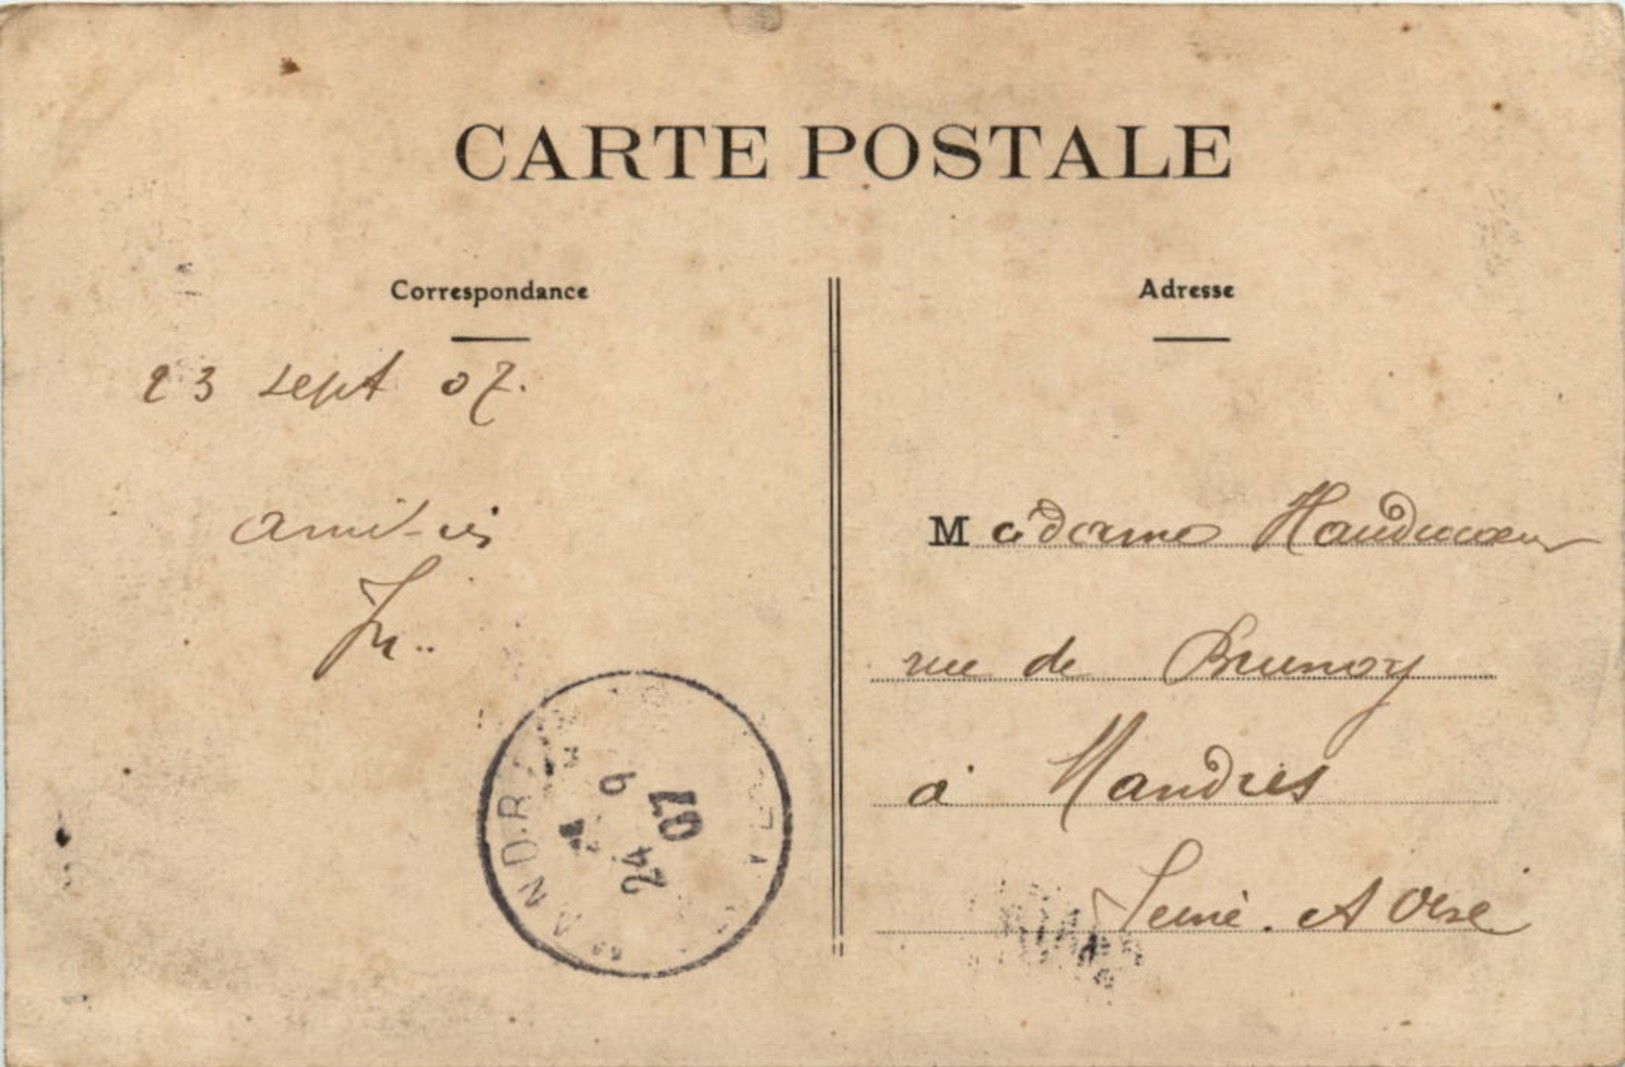 CARTE POSTALE
Correspondance
23 sept 07.
amitiés
Adresse
Madame Haudecoeur
rue de Brunoy
à Mandres
Seine et Oise
MANDR
24 9
07